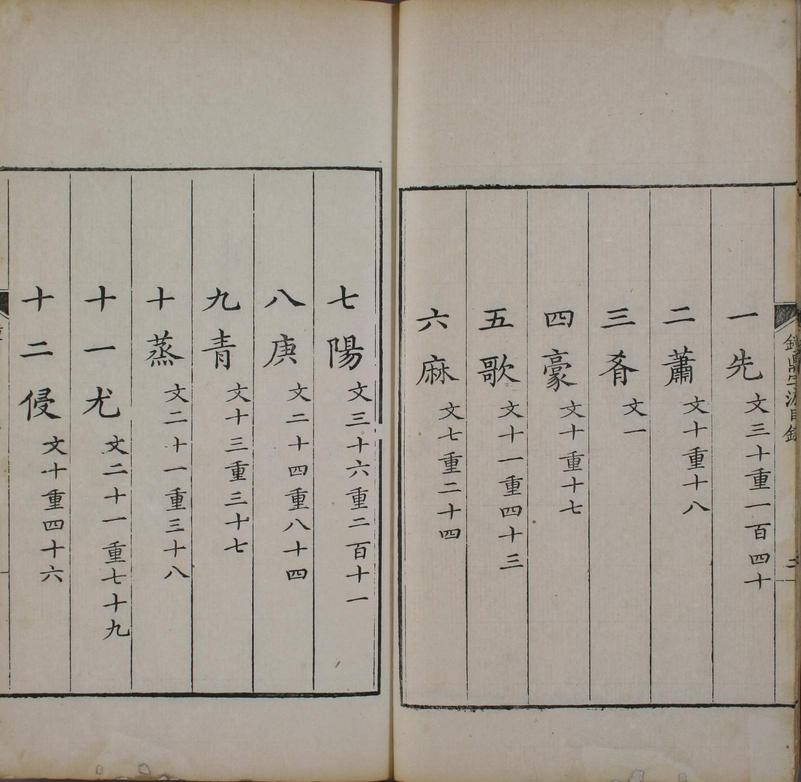 鐘鼎字源目錄
三
一先 文三十重一百四十
二蕭 文十重十八
三肴 文一
四豪 文十重十七
五歌 文十一重四十三
六麻 文七重二十四
七陽 文三十六重二百十一
八庚 文二十四重八十四
九青 文十三重三十七
十蒸 文二十一重三十八
十一尤 文二十一重七十九
十二侵 文十重四十六